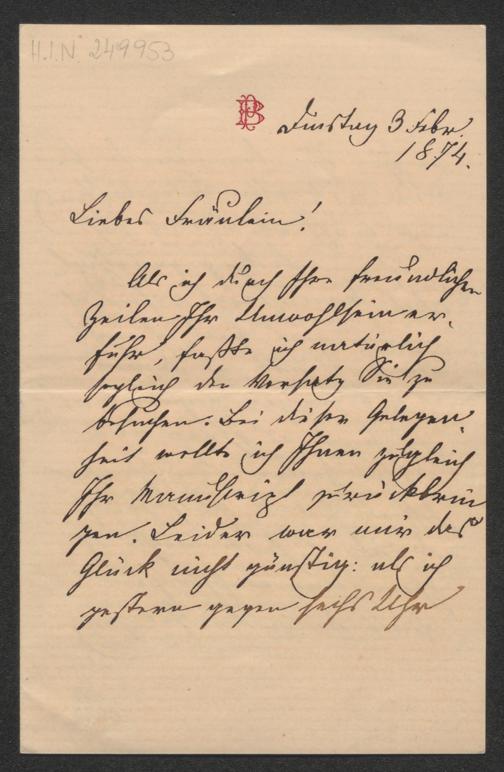 H.I.N. 249953
B
Dinstag 3 Febr.
1874.
Liebes Fräulein!
Als ich durch Ihre freundlichen
Zeilen Ihr Unwohlsein er-
fuhr, faßte ich natürlich
sogleich den Vorsatz Sie zu
besuchen. Bei dieser Gelegen-
heit wollte ich Ihnen zugleich
Ihr Manuskript zurückbrin
gen. Leider war mir das
Glück nicht günstig: als ich
gestern gegen sechs Uhr